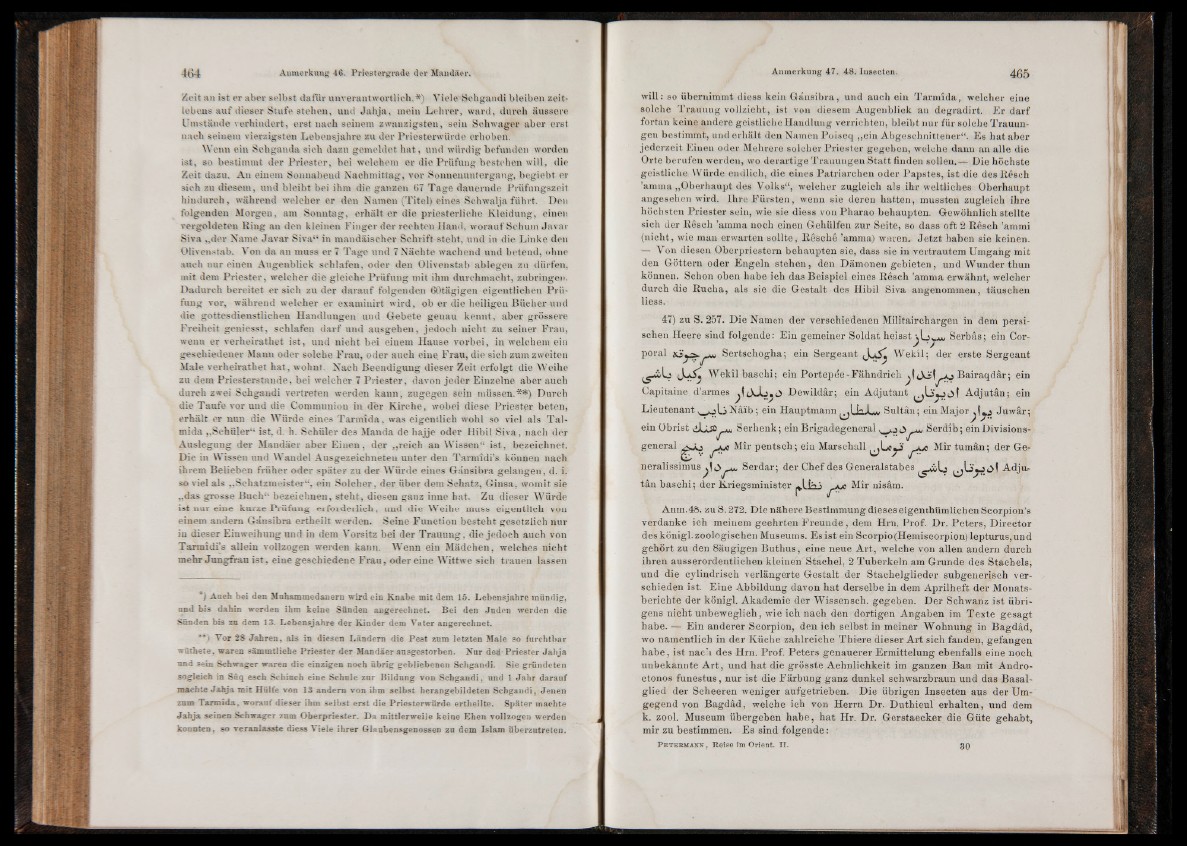 464 Anmerkung 46. Priestergrade der Mandäer.
Zeit an ist er aber selbst dafür unverantwortlich.*) Viele Schgandi bleiben zeit-
lebens auf dieser Stufe stehen, und Jahja, mein Lehrer, ward, durch äussere
Umstände verhindert, erst nach seinem zwanzigsten, sein Schwager aber erst
nach seinem vierzigsten Lebensjahre zu der Priesterwürde erhoben.
Wenn ein Schganda sich dazu gemeldet hat, und würdig befunden worden
ist, so bestimmt der Priester, bei welchem er die Prüfung bestehen will, die
Zeit dazu. An einem Sonnabend Nachmittag, vor Sonnenuntergang, begiebt er
sich zu diesem, und bleibt bei ihm die ganzen 67 Tage dauernde Prüfungszeit
hindurch, während welcher er den Namen (Titel) eines Schwalja führt. Den
folgenden Morgen, am Sonntag, erhält er die priesterliche Kleidung, einen
vergoldeten Ring an den kleinen Finger der rechten Hand, worauf Schum Javar
Siva „der Name Javar Siva“ in mandäischer Schrift steht, und in die Linke den
Olivenstab. Von da an muss er 7 Tage und 7 Nächte wachend und betend, ohne
auch nur einen Augenblick schlafen, oder den Olivenstab ablegen zu dürfen,
mit dem Priester, welcher die gleiche Prüfung mit ihm durchmacht, zubringen.
Dadurch bereitet er sich zu der darauf folgenden 60tägigen eigentlichen Prü-
fung vor, während welcher er examinirt wird, ob er die heiligen Bücher und
die gottesdienstlichen Handlungen und Gebete genau kennt, aber grössere
Freiheit geniesst, schlafen darf und ausgehen, jedoch nicht zu seiner Frau,
wenn er verheirathet ist, und nicht bei einem Hause vorbei, in welchem ein
geschiedener Mann oder solche Frau, oder auch eine Frau, die sich zum zweiten
Male verheirathet hat, wohnt. Nach Beendigung dieser Zeit erfolgt die Weihe
zu dem Priesterstande, bei welcher 7 Priester, davon jeder Einzelne aber auch
durch zwei Schgandi vertreten werden kann, zugegen sein müssen.**) Durch
die Taufe vor und die Communion in der Kirche, wobei diese Priester beten,
erhält er nun die Würde eines Tarmida, was eigentlich wohl so viel als Tal-
mida „Schüler“ ist, d. h. Schüler des Manda de hajje oder Hibil Siva, nach der
Auslegung der Mandäer aber Einen, der „reich an Wissen“ ist, bezeichnet.
Die in Wissen und Wandel Ausgezeichneten unter den Tarmidi's können nach
ihrem Belieben früher oder später zu der Würde eines Gánsibra gelangen, d. i.
so viel als „Schatzmeister“, ein Solcher, der über dem Schatz, Ginsa, womit sie
„das grosse Buch“ bezeichnen, steht, diesen ganz inne hat. Zu dieser Würde
ist nur eine kurze Prüfung erforderlich, und die Weihe muss eigentlich von
einem andern Gánsibra ertheilt werden. Seine Function besteht gesetzlich nur
in dieser Einweihung und in dem Vorsitz bei der Trauung, die jedoch auch von
Tarmidi's allein vollzogen werden kann. Wenn ein Mädchen, welches nicht
mehr Jungfrau ist, eine geschiedene Frau, oder eine Wittwe sich trauen lassen
*) Auch bei den Muhammedanern wird ein Knabe mit dem 15. Lebensjahre mündig,
und bis dahin werden ihm keine Sünden angerechnet. Bei den Juden werden die
Sünden bis zu dem 13. Lebensjahre der Kinder dem Vater angerechnet.
**) Vor 28 Jahren, als in diesen Ländern die Pest zum letzten Male so furchtbar
wüthete, waren sämmtliche Priester der Mandäer ausgestorben. Nur des Priester Jahja
und sein Schwager waren die einzigen noch übrig gebliebenen Schgandi. Sie gründeten
sogleich in Sûq esch Schiuch eine Schule zur Bildung von Schgandi, und 1 Jahr darauf
machte Jahja mit Hülfe von 13 andern von ihm selbst herangebildeten Schgandi, Jenen
zum Tarmida, worauf dieser ihm selbst erst die Priesterwürde ertheilte. Später machte
Jahja seinen Schwager zum Oberpriester. Da mittlerweile keine Ehen vollzogen werden
konnten, so veranlasste diess Viele ihrer Glaubensgenossen zu dem Islam überzutreten.
Anmerkung 47. 48. Insecten. 465
will: so übernimmt diess kein Gánsibra, und auch ein Tarmida, welcher eine
solche Trauung vollzieht, ist von diesem Augenblick an degradirt. Er darf
fortan keine andere geistliche Handlung verrichten, bleibt nur für solche Trauun-
gen bestimmt, und erhält den Namen Poiseq „ein Abgeschnittener“. Es hat aber
jederzeit Einen oder Mehrere solcher Priester gegeben, welche dann an alle die
Orte berufen werden, wo derartige Trauungen Statt finden sollen.— Die höchste
geistliche Würde endlich, die eines Patriarchen oder Papstes, ist die des Rêsch
'amma „Oberhaupt des Volks“, welcher zugleich als ihr weltliches Oberhaupt
angesehen wird. Ihre Fürsten, wenn sie deren hatten, mussten zugleich ihre
höchsten Priester sein, wie sie diess von Pharao behaupten. Gewöhnlich stellte
sich der Rêsch 'amma noch einen Gehülfen zur Seite, so dass oft 2 Rêsch 'ammi
(nicht, wie man erwarten sollte, Rêschê 'amma) waren. Jetzt haben sie keinen.
— Von diesen Oberpriestern behaupten sie, dass sie in vertrautem Umgang mit
den Göttern oder Engeln stehen, den Dämonen gebieten, und Wunder thun
können. Schon oben habe ich das Beispiel eines Rêsch 'amma erwähnt, welcher
durch die Rucha, als sie die Gestalt des Hibil Siva angenommen, täuschen
liess.
47) zu S. 257. Die Namen der verschiedenen Militairchargen in dem persi-
schen Heere sind folgende: Ein gemeiner Soldat heisst سرباز Serbâs; ein Cor-
poral سرجوغه Sertschogha; ein Sergeant وكيل Wekîl; der erste Sergeant
وكيل باشى Wekîl baschi; ein Portepée-Fähndrich بيراقدار Bairaqdâr; ein
Capitaine d'armes دويلدار Dewildâr; ein Adjutant اديوتان Adjutân; ein
Lieutenant نايب Nâïb; ein Hauptmann سلطان Sultân; ein Major ياور Juwâr;
ein Obrist سرهنك Serhenk; ein Brigadegeneral سرديب Serdîb; ein Divisions-
general مير پنج Mir pentsch; ein Marschall مير تومان Mir tumân; der Ge-
neralissimus سردار Serdar; der Chef des Generalstabes اديوتان باشى Adju-
tân baschi; der Kriegsminister مير نظام Mir nisâm.
Anm. 48. zu S. 272. Die nähere Bestimmung dieses eigenthümlichen Scorpion's
verdanke ich meinem geehrten Freunde, dem Hrn. Prof. Dr. Peters, Director
des königl. zoologischen Museums. Es ist ein Scorpio (Hemiscorpion) lepturus, und
gehört zu den Säugigen Buthus, eine neue Art, welche von allen andern durch
ihren ausserordentlichen kleinen Stachel, 2 Tuberkeln am Grunde des Stachels,
und die cylindrisch verlängerte Gestalt der Stachelglieder subgenerisch ver-
schieden ist. Eine Abbildung davon hat derselbe in dem Aprilheft der Monats-
berichte der königl. Akademie der Wissensch. gegeben. Der Schwanz ist übri-
gens nicht unbeweglich, wie ich nach den dortigen Angaben im Texte gesagt
habe. — Ein anderer Scorpion, den ich selbst in meiner Wohnung in Bagdâd,
wo namentlich in der Küche zahlreiche Thiere dieser Art sich fanden, gefangen
habe, ist nach des Hrn. Prof. Peters genauerer Ermittelung ebenfalls eine noch
unbekannte Art, und hat die grösste Aehnlichkeit im ganzen Bau mit Andro-
ctonos funestus, nur ist die Färbung ganz dunkel schwarzbraun und das Basal-
glied der Scheeren weniger aufgetrieben. Die übrigen Insecten aus der Um-
gegend von Bagdâd, welche ich von Herrn Dr. Duthieul erhalten, und dem
k. zool. Museum übergeben habe, hat Hr. Dr. Gerstaecker die Güte gehabt,
mir zu bestimmen. Es sind folgende:
PETERMANN, Reise im Orient. II. 30